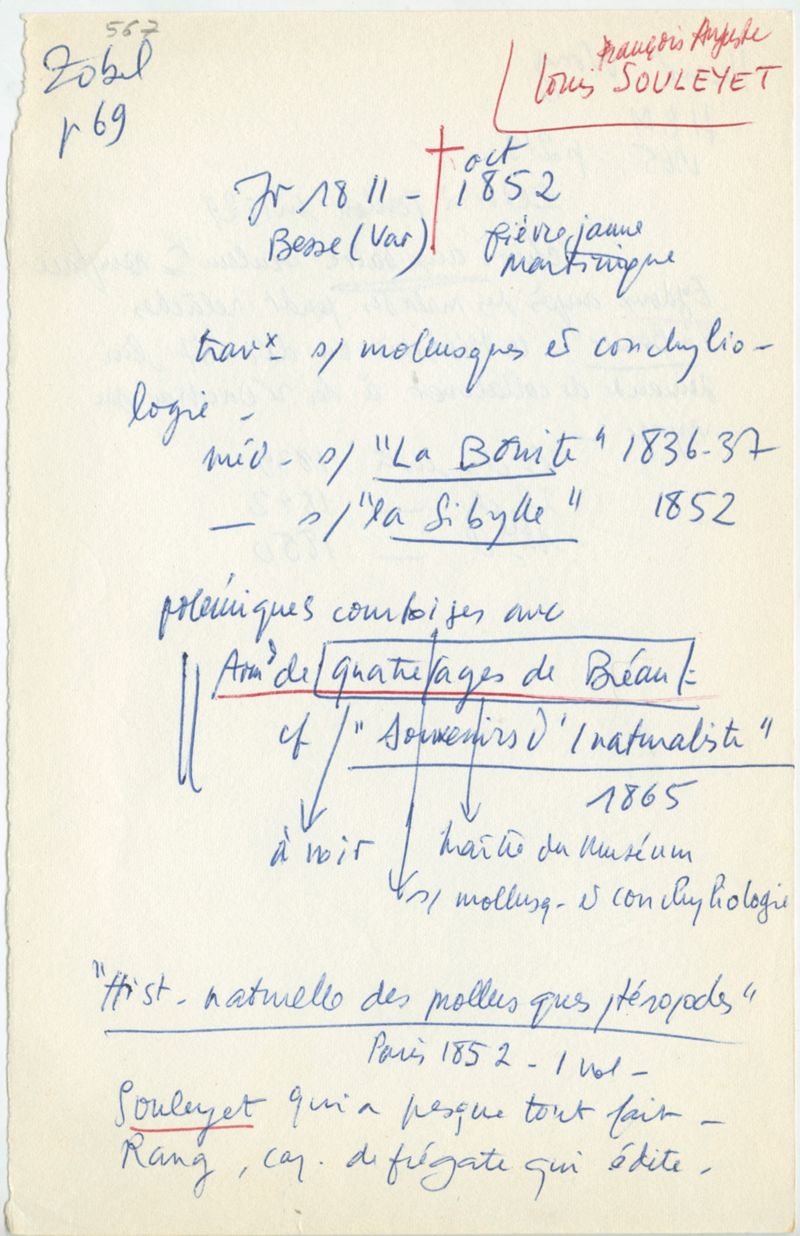 567
Zobel
p 69
François Auguste
Louis SOULEYET
Jr 1811 - † oct 1852
Besse (Var) fièvre jaune
Martinique
travx s/ mollusques et conchylio-
logie -
méd - s/ "La Bonite" 1836-37
— s/ "la Sibylle" 1852
polémiques courtoises avec
Armd de Quatrefages de Bréau -
cf "Souvenirs d'1 naturaliste"
1865
à voir
maître du Muséum
s/ mollusq - et conchyliologie
"Hist - naturelle des mollusques ptéropodes"
Paris 1852 - 1 vol -
Souleyet qui a presque tout fait -
Rang, cap. de frégate qui édite.